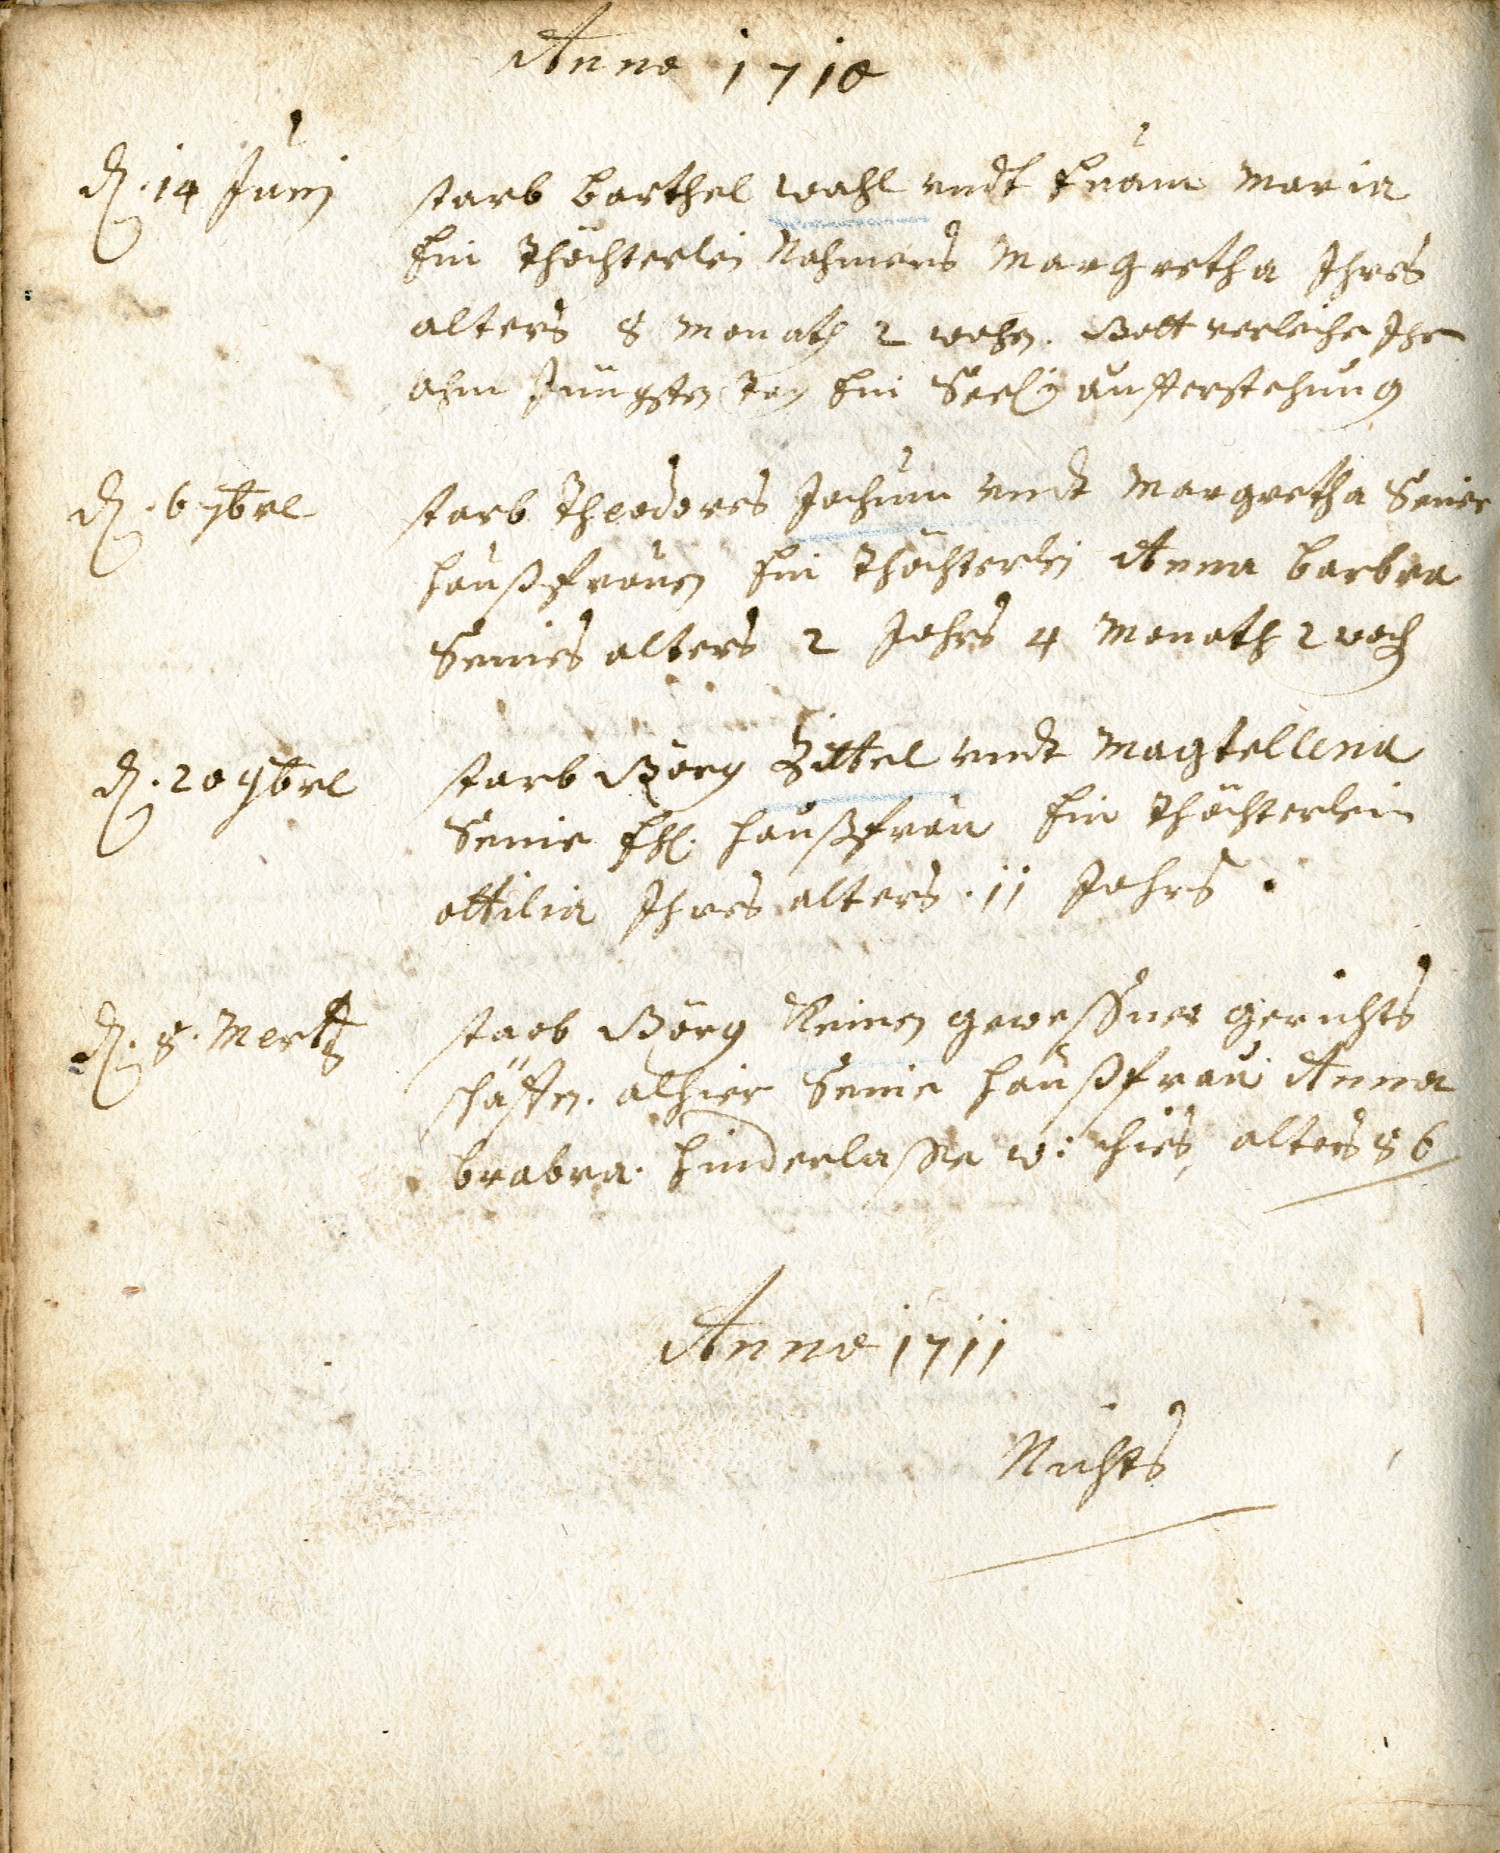 Anno 1710
d. 14 Juni
starb barthel wahl undt Maria
Ein Thöchterlein Nahmens Margretha Ihres
alters 8 Monath 2 wohen. Gott verleihe Ihr
ahm Jüngsten Tag Ein Seelig aufferstehung
d. 6 7brl
starb Theodores Jochum undt Margretha Seine
haußfrauen Ein Thöchterlein Anna barbra
Seines alters 2 Jahrs 4 Monath 2 woch
d. 20 9brl
starb Görg Zittel undt Magtellena
Seine Ehl. haußfrau Ein Thöchterlein
ottilia Ihres alters . 11 Jahrs .
d. 8. Mertz
starb Görg Reinen geweßner gerichts
schäffen. alhier Seine haußfrau Anna
brabra. hinderlaßne alters 86
Anno 1711
Nichts